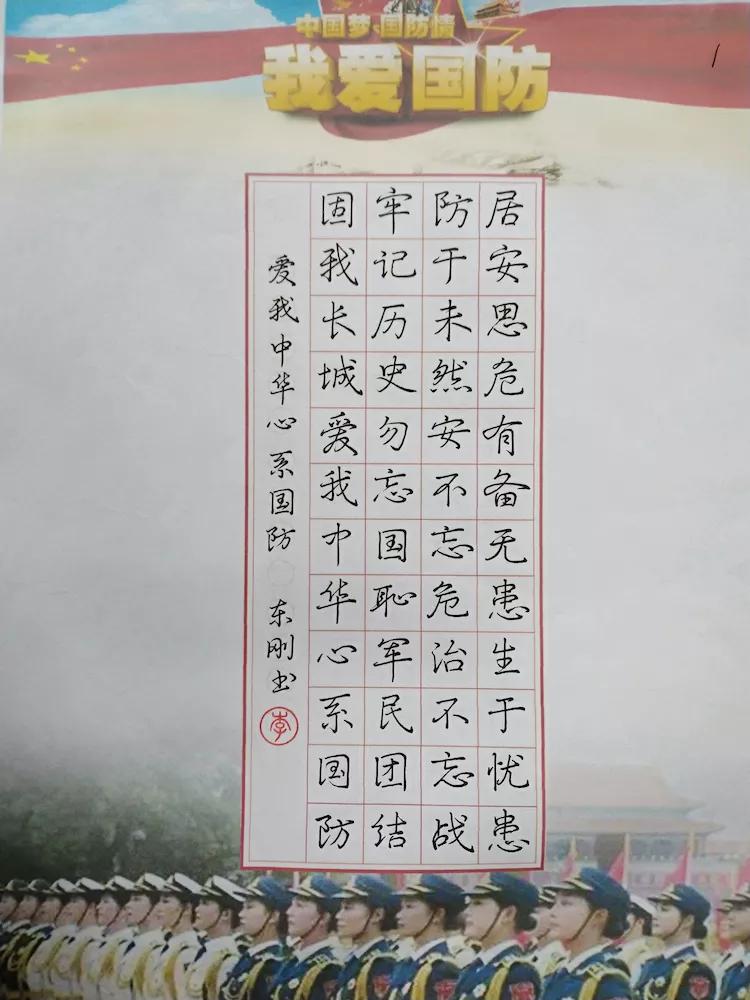 中国梦·国防情
我爱国防
居安思危有备无患生于忧患
防于未然安不忘危治不忘战
牢记历史勿忘国耻军民团结
固我长城爱我中华心系国防
爱我中华心系国防 东刚书
李